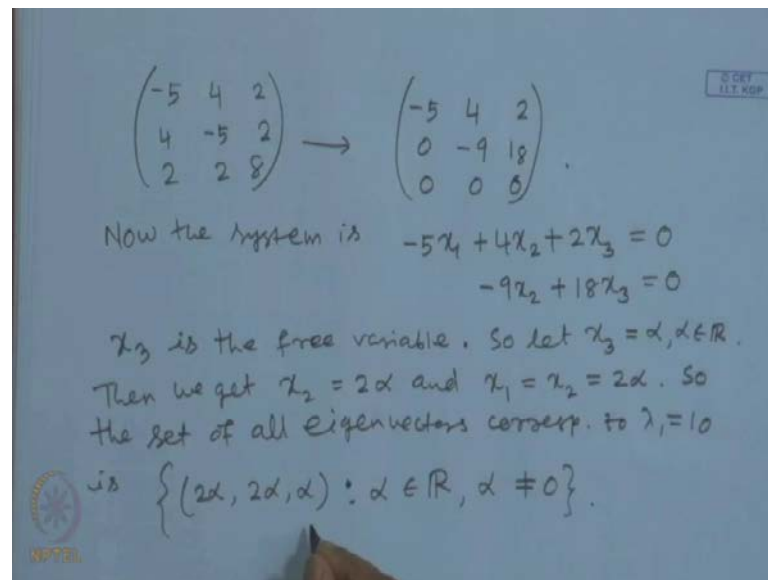 © CET
I.I.T. KGP
(-5 4 2) (-5 4 2)
(4 -5 2) → (0 -9 18)
(2 2 8) (0 0 0).
Now the system is -5x₁ + 4x₂ + 2x₃ = 0
-9x₂ + 18x₃ = 0
x₃ is the free variable. So let x₃ = α, α∈ℝ.
Then we get x₂ = 2α and x₁ = x₂ = 2α. So
the set of all eigenvectors corresp. to λ₁ = 10
is {(2α, 2α, α) : α ∈ ℝ, α ≠ 0}.
NPTEL